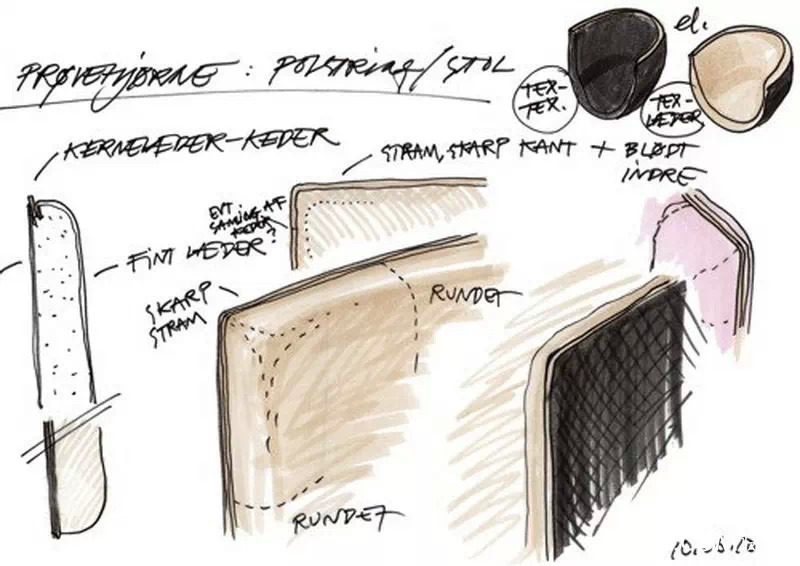 PRØVEHJØRNE : POLSTRING/STOL
el.
TEX-
TEX.
TEX-
LÆDER
KERNELÆDER-KEDER
STRAM, SKARP KANT + BLØDT
INDRE
EVT.
SAMING AF
KEDER?
FINT LÆDER
SKARP
STRAM
RUNDET
RUNDET